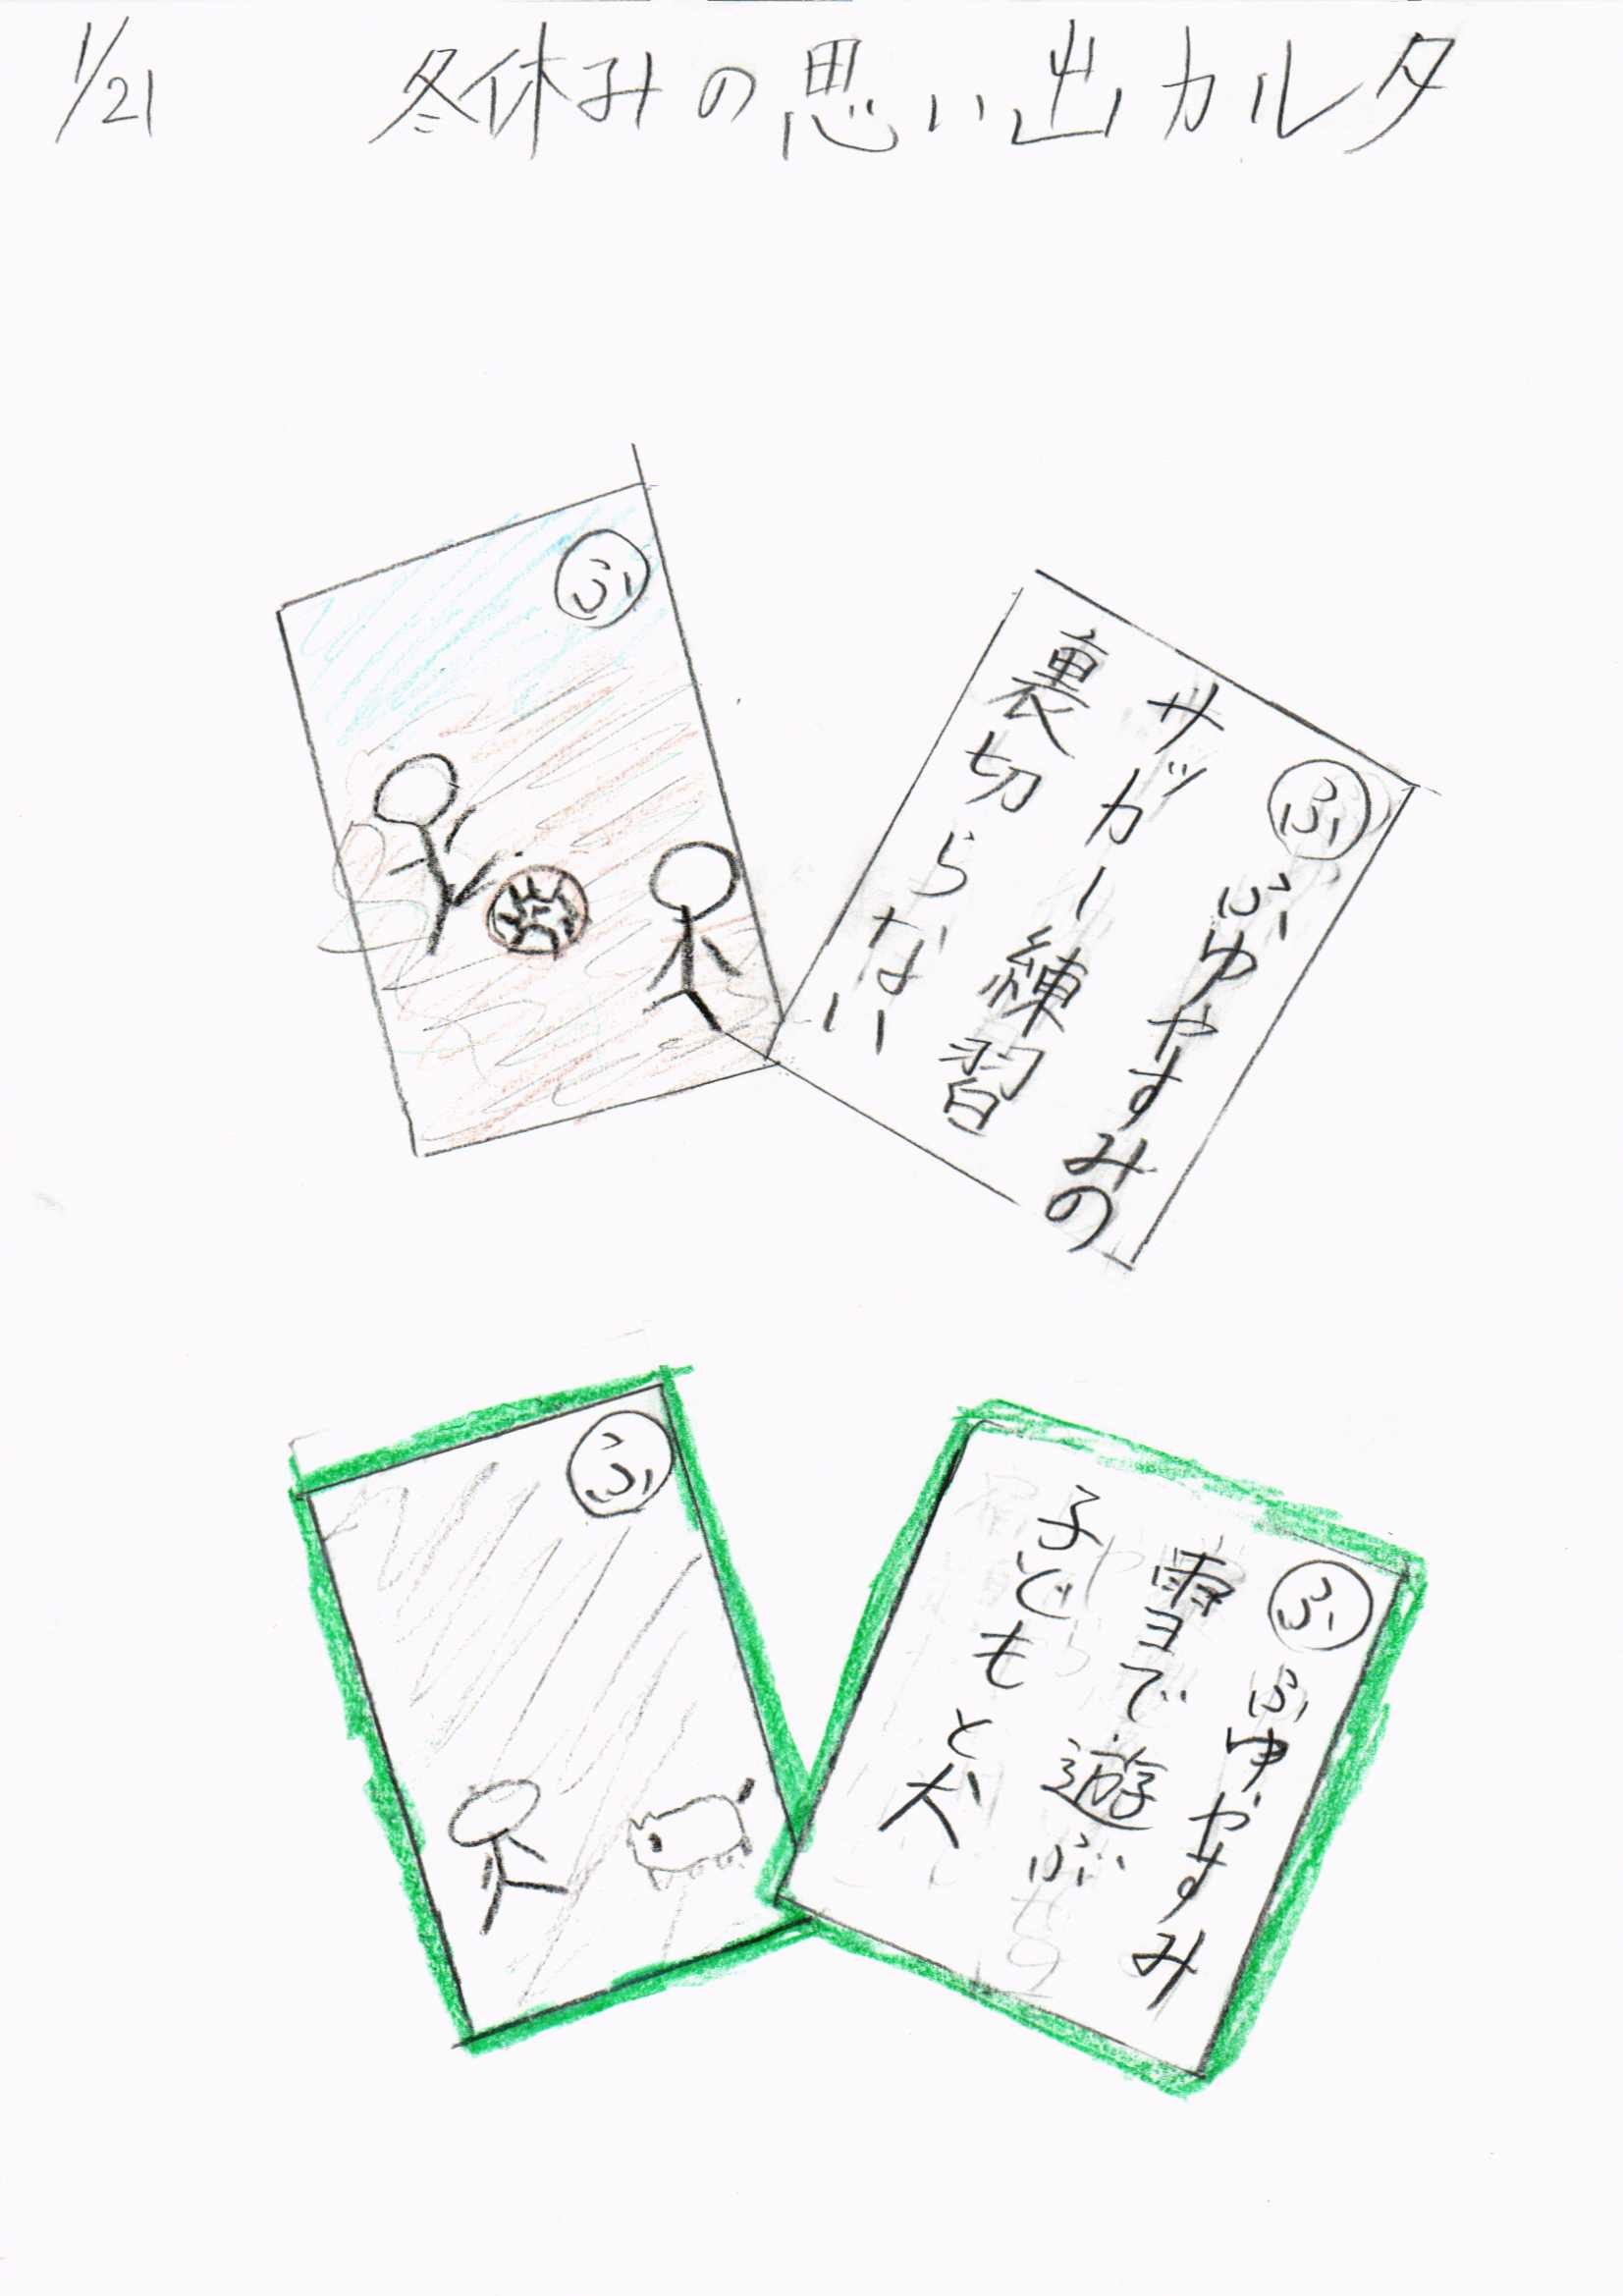 1/21
冬休みの思い出カルタ
ふ
ふ
ふゆやすみの
サッカー練習
裏切らない
ふ
ふ
ふゆやすみ
雪で遊ぶ
子どもと犬